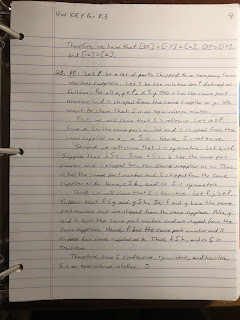 HW KEY For 8.3 4
Therefore, we have that [35] = [-7] = [0], [3] = [17],
and [12] = [-2].
43. PF - Let P be a set of parts shipped to a company from
various suppliers. Let S be the relation on P defined as
follows: for all x, y ∈ P, x S y iff x has the same part
number and is shipped from the same supplier as y. We
want to show that S is an equivalence relation.
First, we will show that S is reflexive. Let a ∈ P.
Since a has the same part number and is shipped from the
same supplier as a, a S a. Hence, S is reflexive.
Second, we will show that S is symmetric. Let
Suppose that b S c. Since b S c, b has the same part
number and is shipped from the same supplier as c. Thus,
c has the same part number and is shipped from the same
supplier as b. Hence, c S b, and so S is symmetric.
Third, we will show that S is transitive. Let f, g, h ∈ P.
Suppose that f S g and g S h. So f and g have the same
part number and are shipped from the same supplier. Also, g
and h have the same part number and are shipped from the
same supplier. Hence, f has the same part number and is
shipped from same supplier as h. Thus, f S h, and so S is
transitive.
Therefore, since S is reflexive, symmetric, and transitive,
S is an equivalence relation. □